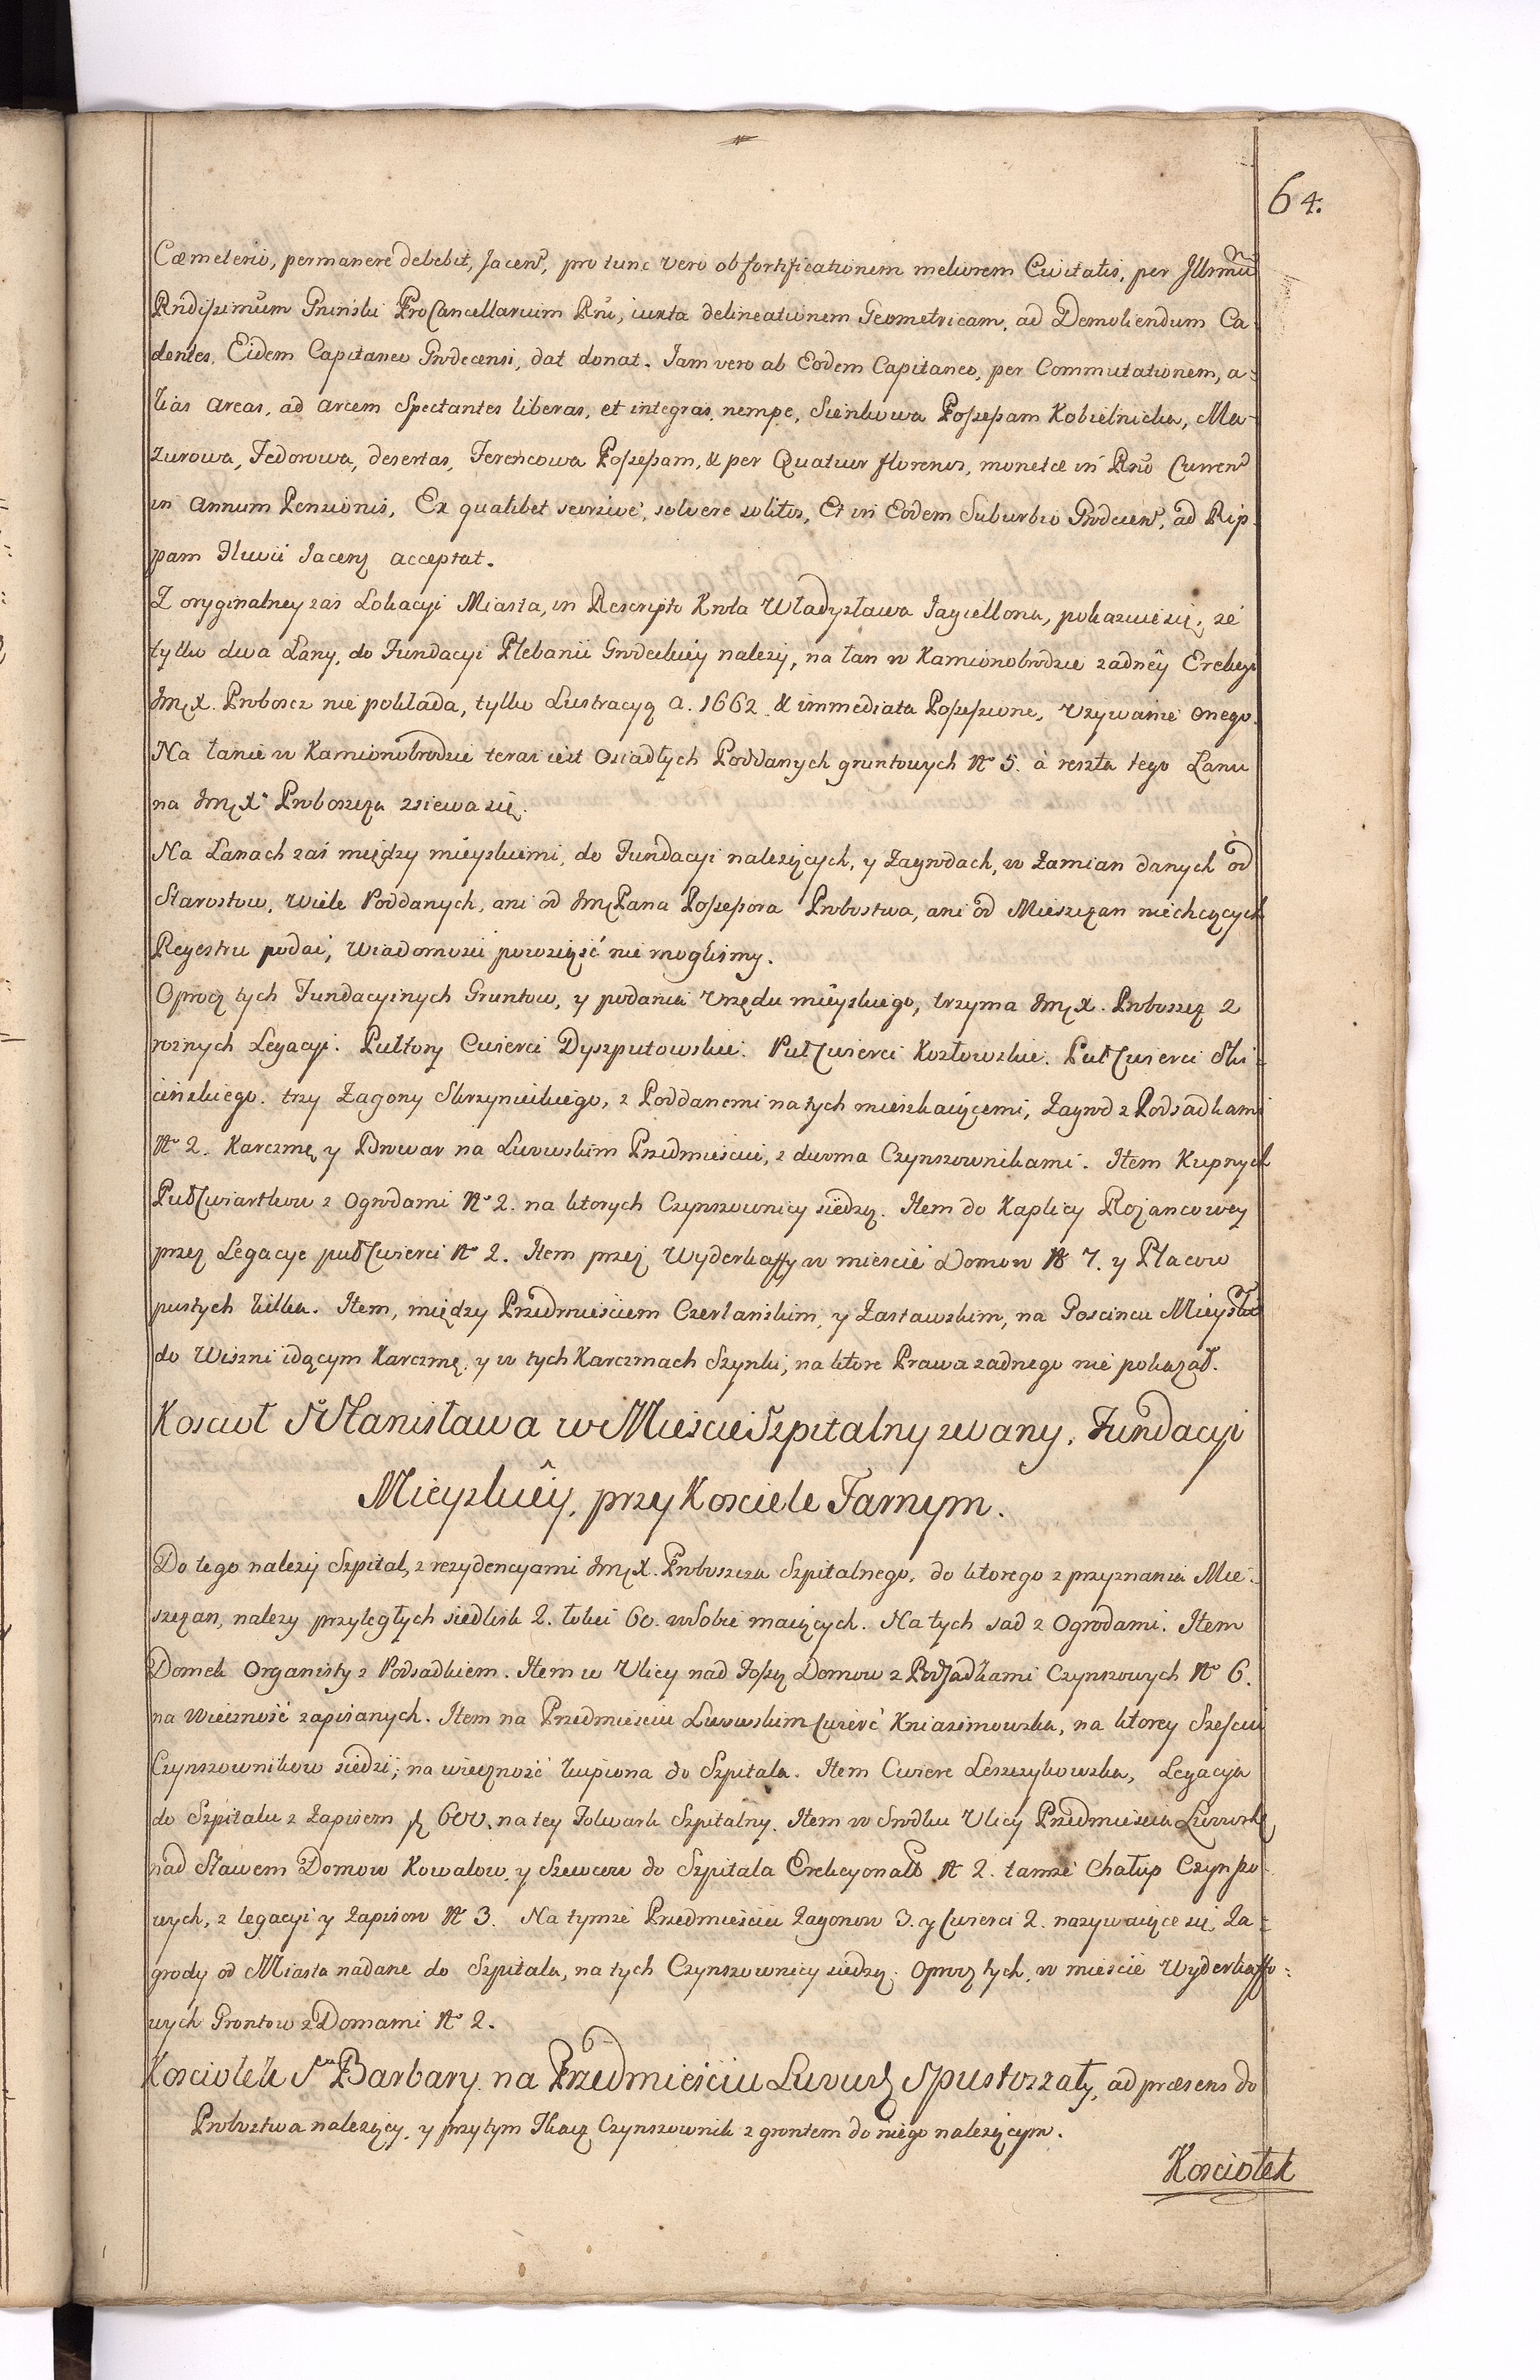 64.
Cœmeterio, permanere debebit, Jacen͠, pro tunc vero ob fortificationem meliorem Civitatis, per Jllrmũ
Rndissimũm Gninski ProCancellarium Rñi, iuxta delineationem Geometricam, ad Demoliendum Ca-
dentes, Eidem Capitaneo Grodecensi, dat donat. Jam vero ab Eodem Capitaneo, per Commutationem, a=
lias areas, ad arcem Spectantes liberas, et integras, nempe, Sienkowa Possessam Kobielnicka, Ma-
zurowa, Fedorowa, desertas, Ferencowa Possessam, & per Quatuor florenos, monetæ in Rño Curren͠
in annum Pensionis, Ex qualibet seorsive, solvere solitos, Et in Eodem Suburbio Grodecen͠, ad Rip-
pam Fluvii Jacen͠ acceptat.
Z oryginalney zas Lokacyi Miasta, in Rescripto Krola Władysława Jagiellona, pokazuie się, że
tylko dwa Łany, do Fundacyi Plebanii Grodeckiey należy, na łan w Kamionobrodzie zadnêy Erekcyi
Jmę X. Proboscz nie pokłada, tylko Lustracyą a. 1662 & immediata Possessione, używanie onego.
Na łanie w Kamionobrodzie teraz iest Osiadłych Poddanych gruntowych No 5. à reszta tego Łanu
na Jmę Xa Proboszcza zsiewa się.
Na Łanach zaś między mieyskiemi, do Fundacyi należących, y Zagrodach, w Zamian danych od
Starostow, wiele Poddanych, ani od JmęPana Possessora Probostwa, ani od Mieszczan niechcących
Regestru podać, wiadomosci powziąść nie mogliśmy.
Oprocz tych Fundacyinych Gruntow, y podania Urzędu mieyskiego, trzyma Jmę X. Proboszcz z
rożnych Legacyi. Pułtory Cwierci Dyszputowskie. PułCwierci Kozłowskie. PułCwierci Ski-
cinskiego. trzy Zagony Skrzynickiego, z Poddanemi na tych mieszkaiącemi, Zagrod z Podsadkami
No 2. Karczmę y Browar na Lwowskim Przedmiesciu, z dwoma Czynszownikami. Item Kupnych
PułCwiartkow z Ogrodami No 2. na ktorych Czynszownicy siedzą. Item do Kaplicy Rożancowey
przez Legacye pułCwierci No 2. Item przez Wyderkaffy w mieście Domow No 7. y Placow
pustych kilka. Item, między Przedmieściem Czerlańskim, y Zastawskim, na Goscincu Mieyskĩ
do Wiszni idącym Karczmę, y w tych Karczmach Szynki, na ktore Prawa zadnego nie pokazał.
Koscioł S. Stanisława w Mieście Szpitalny zwany, Fundacyi
Mieyskiêy, przy Kosciele Farnym.
Do tego należy Szpital, z rezydencyami Jmę X. Proboszcza Szpitalnego, do ktorego z przyznania Mie-
szczan, należy przyległych siedlisk 2. łokci 60. w Sobie maiących. Na tych sad z Ogrodami. Item
Domek Organisty z Podsadkiem. Item w Ulicy nad Fossą Domow z PodSadkami Czynszowych No 6.
na wieczność zapisanych. Item na Przedmieściu Lwowskim Cwierć Kniazimowska, na ktorey Szesciu
Czynszownikow siedzi, na wieczność kupiona do Szpitala. Item Cwierć Leszczykowska, Legacya
do Szpitalu z Zapisem 600. na tey Folwark Szpitalny. Item w Srodku Ulicy Przedmieścia Lwowsk
nad Stawem Domow Kowalow, y Szewcow do Szpitala Erekcyonal No 2. tamże Chałup Czynszo-
wych, z legacyi y Zapisow No 3. Na tymże Przedmieściu Zagonow 3. y Cwierci 2. nazywaiące się Za=
grody od Miasta nadane do Szpitala, na tych Czynszownicy siedzą. Oprocz tych, w mieście Wyderkaffo=
wych Grontow z Domami No 2.
Kosciołek Stey Barbary na Przedmieściu Lwowsk Spustoszały, ad præsens do
Probostwa należący, y przy tym Tkacz Czynszownik z grontem do niego należącym.
Kosciołek